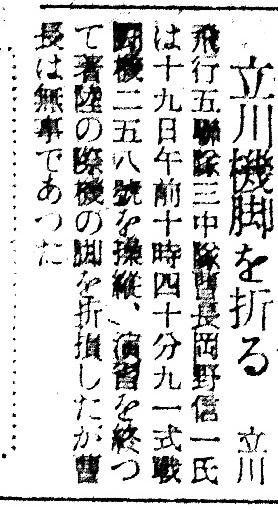 立川機脚を折る 立川
飛行五聯隊三中隊曹長岡野信一氏
は十九日午前十時四十分九一式戰
鬪機二五八號を操縱、演習を終つ
て著陸の際機の脚を折損したが曹
長は無事であつた